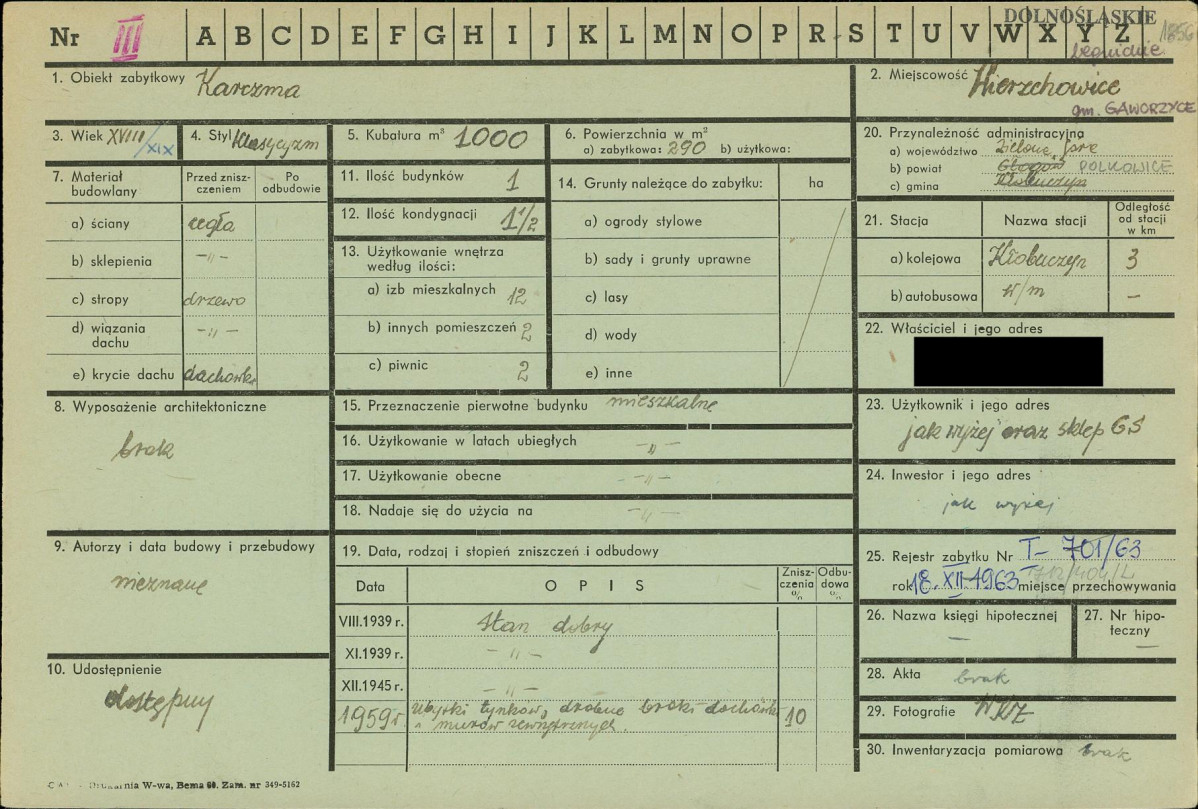 DOLNOŚLĄSKIE
1856
legnickie
Nr III A B C D E F G H I J K L M N O P R S T U V W X Y Z
1. Obiekt zabytkowy Karczma
2. Miejscowość Wierzchowice
gm. GAWORZYCE
3. Wiek XVIII/XIX
4. Styl klasycyzm
5. Kubatura m³ 1000
6. Powierzchnia w m²
a) zabytkowa: 290 b) użytkowa:
7. Materiał budowlany
Przed zniszczeniem
Po odbudowie
a) ściany cegła
b) sklepienia —„—
c) stropy drzewo
d) wiązania dachu —„—
e) krycie dachu dachówka
8. Wyposażenie architektoniczne
brak
9. Autorzy i data budowy i przebudowy
nieznane
10. Udostępnienie
dostępny
11. Ilość budynków 1
12. Ilość kondygnacji 1 1/2
13. Użytkowanie wnętrza według ilości:
a) izb mieszkalnych 12
b) innych pomieszczeń 2
c) piwnic 2
14. Grunty należące do zabytku: ha
a) ogrody stylowe
b) sady i grunty uprawne
c) lasy
d) wody
e) inne
15. Przeznaczenie pierwotne budynku mieszkalne
16. Użytkowanie w latach ubiegłych —„—
17. Użytkowanie obecne —„—
18. Nadaje się do użycia na —„—
19. Data, rodzaj i stopień zniszczeń i odbudowy
Data OPIS Zniszczenia % Odbudowa %
VIII.1939 r. Stan dobry
XI.1939 r. —„—
XII.1945 r. —„—
1959 r. Ubytki tynków, drobne braki dachówki
i murów zewnętrznych. 10
20. Przynależność administracyjna
a) województwo Zielona Góra
b) powiat Głogów POLKOWICE
c) gmina Kłobuczyn
21. Stacja Nazwa stacji Odległość od stacji w km
a) kolejowa Kłobuczyn 3
b) autobusowa w/m —
22. Właściciel i jego adres
23. Użytkownik i jego adres
jak wyżej oraz sklep GS
24. Inwestor i jego adres
jak wyżej
25. Rejestr zabytku Nr T- 701/63
rok 18 XII 1963 miejsce przechowywania
712/404/L
26. Nazwa księgi hipotecznej —
27. Nr hipoteczny —
28. Akta brak
29. Fotografie WKZ
30. Inwentaryzacja pomiarowa brak
Drukarnia W-wa, Bema 60. Zam. nr 349-5162